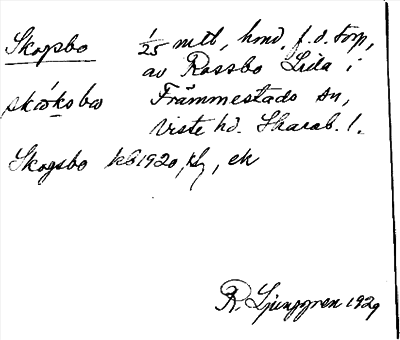 Skogsbo 1/25 mtl, hmd, f.d. torp,
av Rassbo Lida i
skɷ́koba Främmestads sn,
Viste hd. Skarab. l.
Skogsbo kb 1920, ek
R. Ljunggren 1929